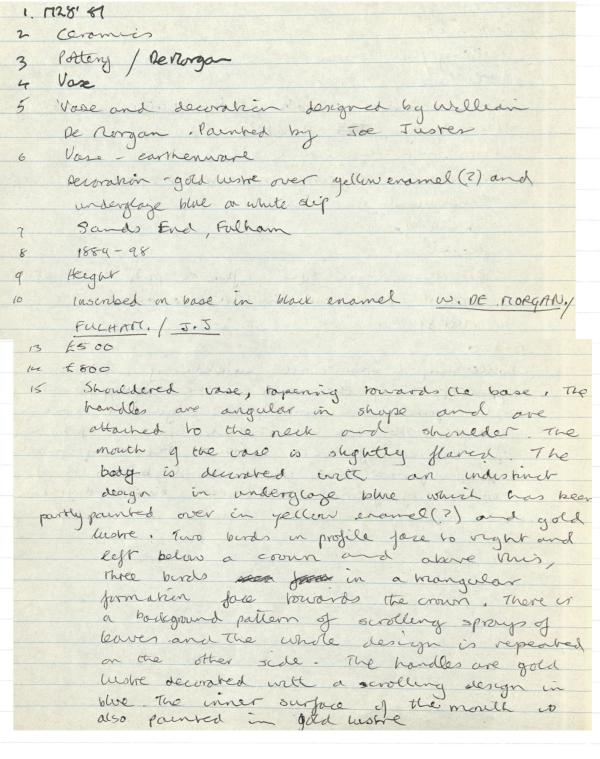 1. M28'87
2 Ceramics
3 Pottery / De Morgan
4 Vase
5 Vase and decoration designed by William
De Morgan. Painted by Joe Juster
6 Vase - earthenware
Decoration - gold lustre over yellow enamel (?) and
underglaze blue on white slip
7 Sands End, Fulham
8 1884-98
9 Height
10 Inscribed on base in black enamel W. DE MORGAN./
FULHAM. / J.J
13 £500
14 £800
15 Shouldered vase, tapering towards the base. The
handles are angular in shape and are
attached to the neck and shoulder. The
mouth of the vase is slightly flared. The
body is decorated with an indistinct
design in underglaze blue which has been
partly painted over in yellow enamel (?) and gold
lustre. Two birds in profile face to right and
left below a crown and above this,
three birds in a triangular
formation face towards the crown. There is
a background pattern of scrolling sprays of
leaves and the whole design is repeated
on the other side. The handles are gold
lustre decorated with a scrolling design in
blue. The inner surface of the mouth is
also painted in gold lustre